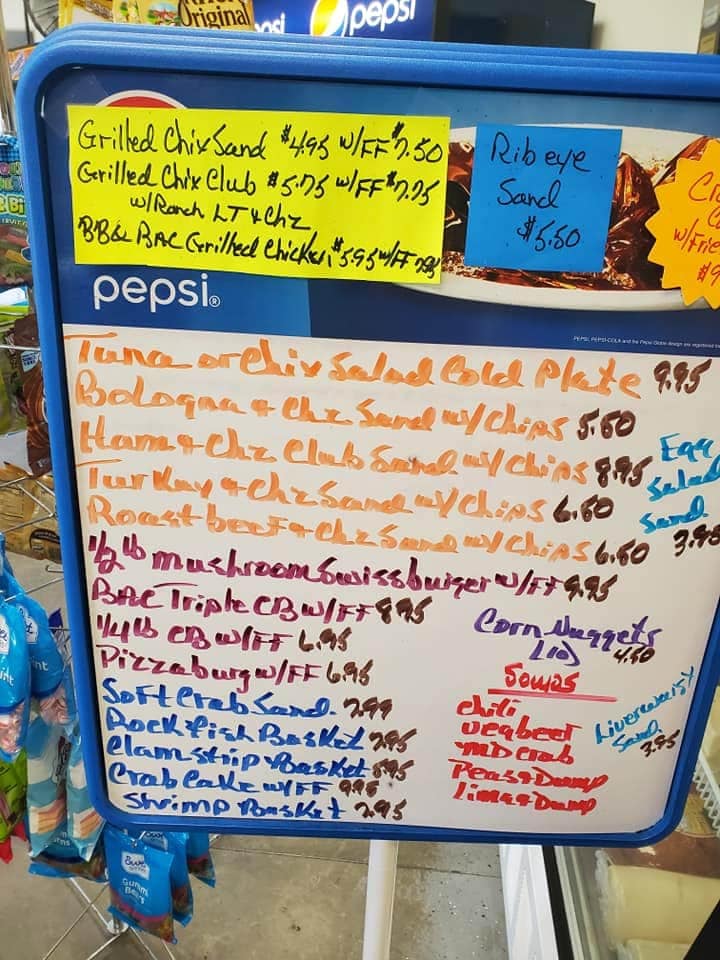 Original
pepsi
Grilled Chix Sand $4.95 w/FF $7.50
Grilled Chix Club $5.75 w/FF $7.75
w/Ranch LT + Chz
BBQ BAC Grilled Chicken $5.95 w/FF 7.95
Rib eye
Sand
$5.50
w/Frie
pepsi
Tuna or Chix Salad Cold Plate 9.95
Bologna + Chz Sand w/Chips 5.50
Ham + Chz Club Sand w/Chips 8.95
Turkey + Chz Sand w/Chips 6.50
Roast beef + Chz Sand w/Chips 6.50
Egg
Salad
Sand
1/2 lb mushroom Swissburger w/FF 9.95
BAC Triple CB w/FF 8.95
1/4 lb CB w/FF 6.95
Pizzaburg w/FF 6.95
Soft Crab Sand. 7.99
Rockfish Basket 7.95
Clamstrip Basket 8.95
Crab Cake w/FF 9.95
Shrimp Basket 7.95
Corn Nuggets
(10) 4.50
Soups
chili
vegbeef
MD crab
Peas + Dump
Lima + Dump
Liverwurst
Sand. 3.95